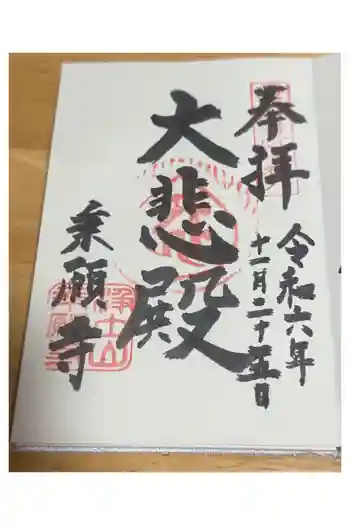 奉拝
令和六年
十一月二十五日
大悲殿
乗願寺